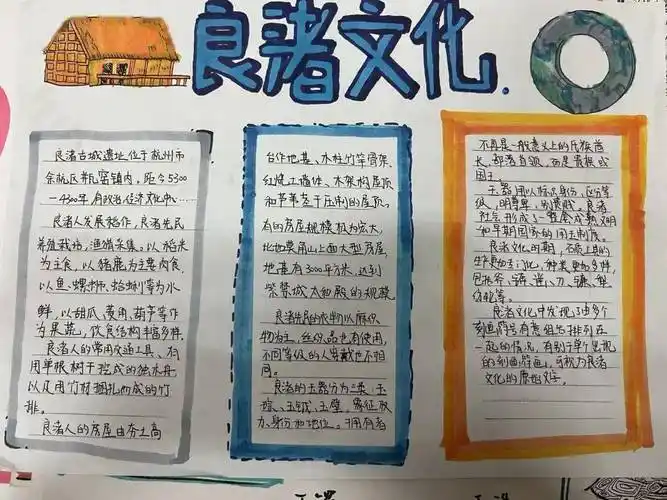 良渚文化.
良渚古城遗址位于杭州市
余杭区瓶窑镇内,距今5300
—4300年,有政治经济文化中心……
良渚人发展稻作,良渚先民
养殖栽培,渔猎采集,以稻米
为主食,以猪鹿为主要肉食,
以鱼、螺蛳、蛤蜊等为水
鲜,以甜瓜、葫芦等作
为果蔬,饮食结构丰富多样.
良渚人的常用交通工具、有
用单根树干挖成的独木舟
以及用竹材捆扎而成的竹
排。
良渚人的房屋由夯土高
台作地基、木柱竹竿骨架、
红烧土墙体、木架构屋顶
和芦苇茎干压制的屋顶。
有的房屋规模极为宏大,
北地莫角山上面大型房屋,
地基有3000平方米,达到
紫禁城太和殿的规模
良渚先民的衣物以麻织
物为主,丝织品也有使用,
不同等级的人穿戴也不相
同。
良渚的玉器分为三类:玉
琮、玉钺、玉璧,象征权
力、身份和地位。拥有者
不再是一般意义上的氏族酋
长、部落首领,而是贵族或
国王
玉器用以标识身份、区分等
级、明尊卑、别贵贱。良渚
社会形成了一套会成熟文明
和早期国家的用玉制度。
良渚文化时期,石质工具的
生产趋专门化,种类更多样,
包括斧、锛、凿、刀、镰、犁
纺轮等。
良渚文化中发现了由多个
刻画符号有意组合排列在
一起的情况,有别于单个出现
的刻画符画,可称为良渚
文化的原始文字。